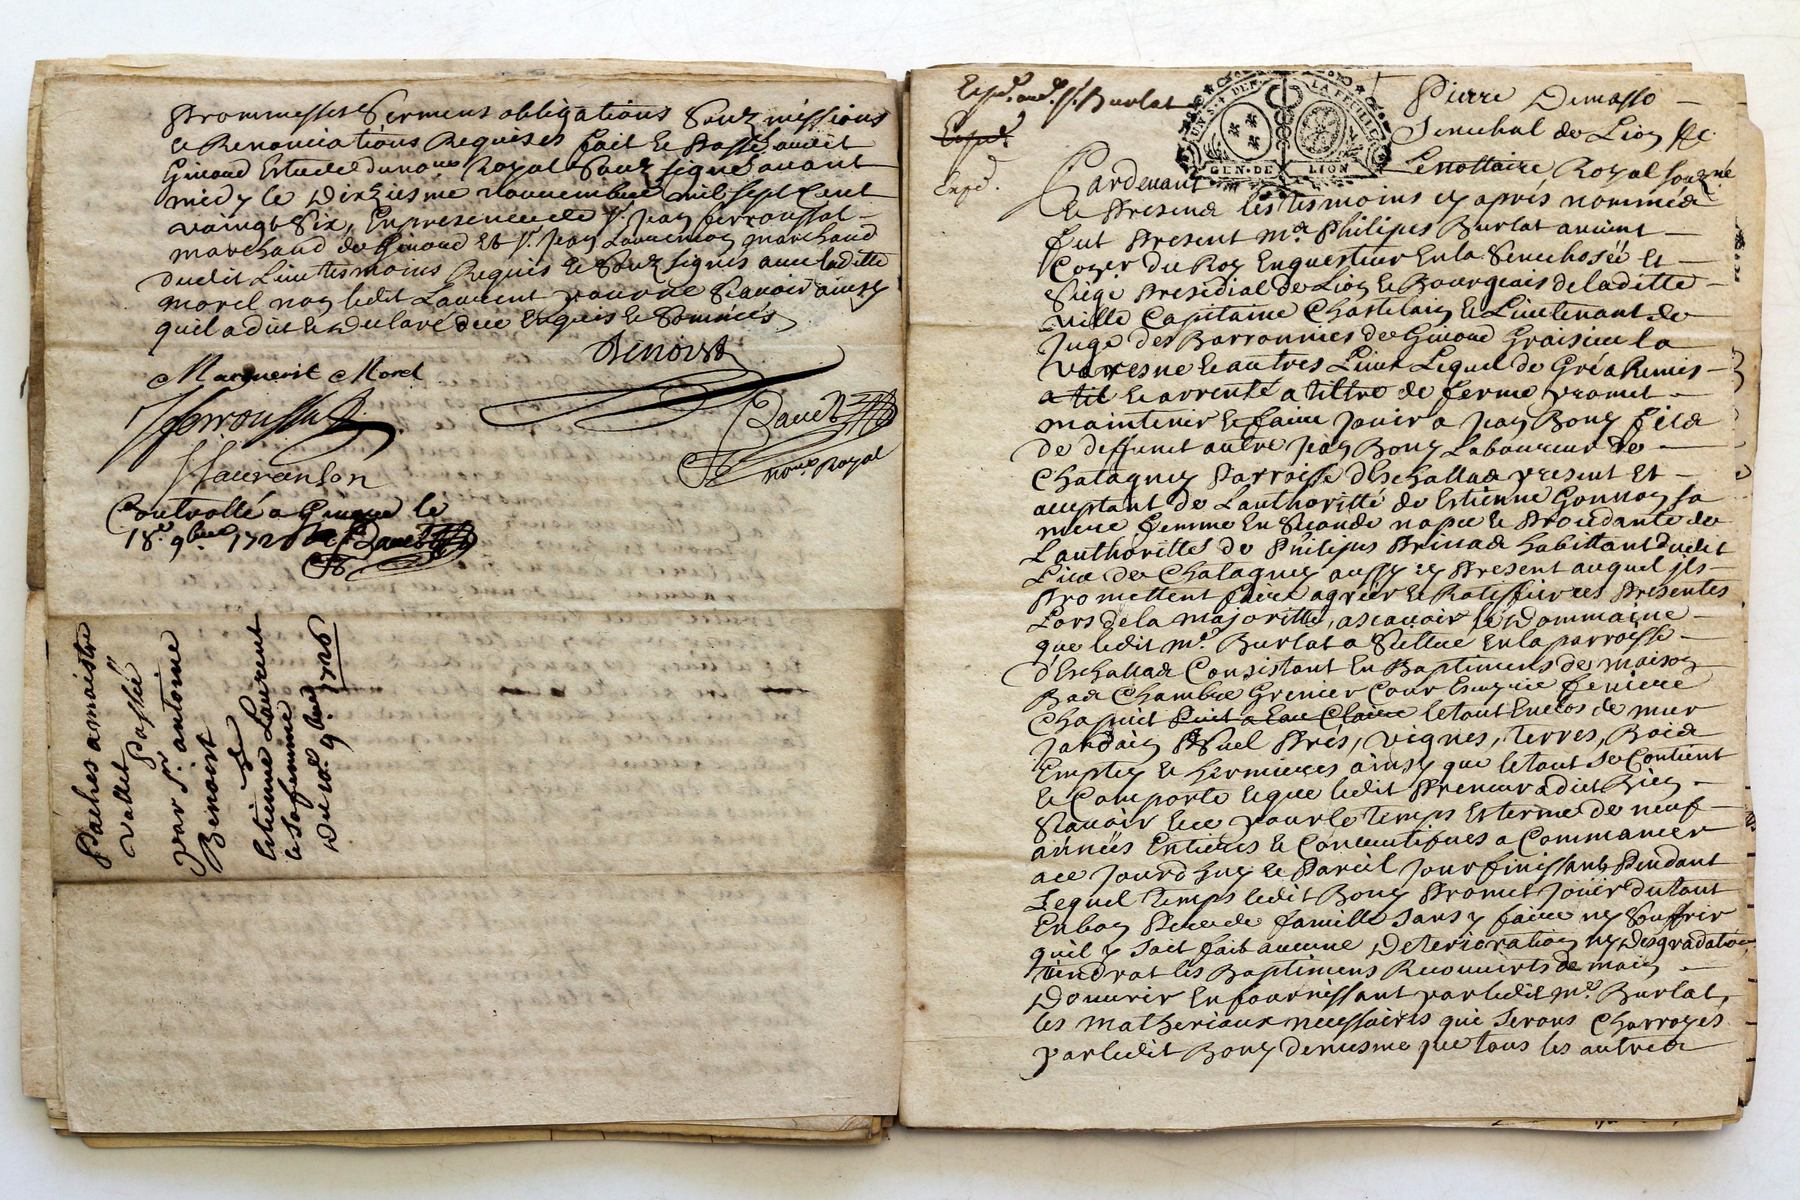 Prommesses Serment obligations Soubz missions
et Renonciations Requises fait et Passé audit
Givord Estude du nore Royal Soubz signé avant
midy le Dixiesme novembre mil sept Cent
vaingt Six, En presence de sr. Jean ferroussat
marchand de Givord Et sr. Jean Laurenson marchand
dudit Lieu tesmoins Requis et Soubz signés avec laditte
morel non ledit Laurent pour ne Scavoir ainsy
quil a dit et declaré de ce Enquis et Sommés
Benoist
Marguerit Morel
Jferroussat
Danet
nore. Royal
J Lauranson
Controllé a Givord le
18e. 9bre 1726 Danet
Paches a maistre
vallet Passée
par Sr. antoine
Benoist
a
Estienne Laurent
et Sa femme
Du 10e. 9bre 1726
Expd. aud. sr. Burlat
Expd.
Expd.
GEN. DE LION
Pierre Demasso
Senechal de Lion &c
Pardevant Le nottaire Royal souzné
Et Presend les tesmoins cy aprés nommés
fut Present Me. Philipes Burlat antient
Coner du Roy Enquesteur En la Senechosée et
Siège Presidial de Lion et Bourgeois de laditte
ville Capitaine Chastelain et Lieutenant de
Juge des Barronnies de Givord Graisieu la
Varesne et autres Lieux Lequel de Gré a Remis
a til et arrenté a tiltre de ferme promet
maintenir et faire Jouir a Jean Bony fils
de deffunct autre Jean Bony Laboureur de
Chatagny Parroisse d'Eschallas present et
acceptant de Lauthoritté de Estienne Gonnon sa
mere femme En Seconde nopce et Procedante de
Lauthoritté de Philipes Prinas habittant dudit
Lieu de Chatagny aussy cy Present auquel ils
Promettent faire agréer et Ratiffier ces Presentes
Lors de la majoritté, a scavoir le Dommaine
que ledit Me. Burlat a Sittué En la parroisse
d'Eschallas Consistant En Baptimens de maison
Bas Chambre Grenier Cour Escurie feniere
Chapuit Puit a Eau Claire le tout Enclos de mur
Jardain Prés, vignes, terres, Bois
Emptes et hermieres ainsy que le tout Se Contient
et Comporte et que ledit Preneur a dit Bien
Scavoir Et ce pour le temps Et terme de neuf
années Entieres et Consecutifves a Commancer
a ce Jourdhuy et Pareil Jour finissant Pendant
Lequel temps ledit Bony Promet Jouir du tout
En bon Pere de famille sans y faire ny Souffrir
quil y soit fait aucune Deterioration ny Desgradation
tiendrat les Baptimens Recouverts de main
Douvrier En fournissant par ledit Me. Burlat,
les matheriaux necessaires qui serons Charroyés
par ledit Bony de mesme que tous les autres